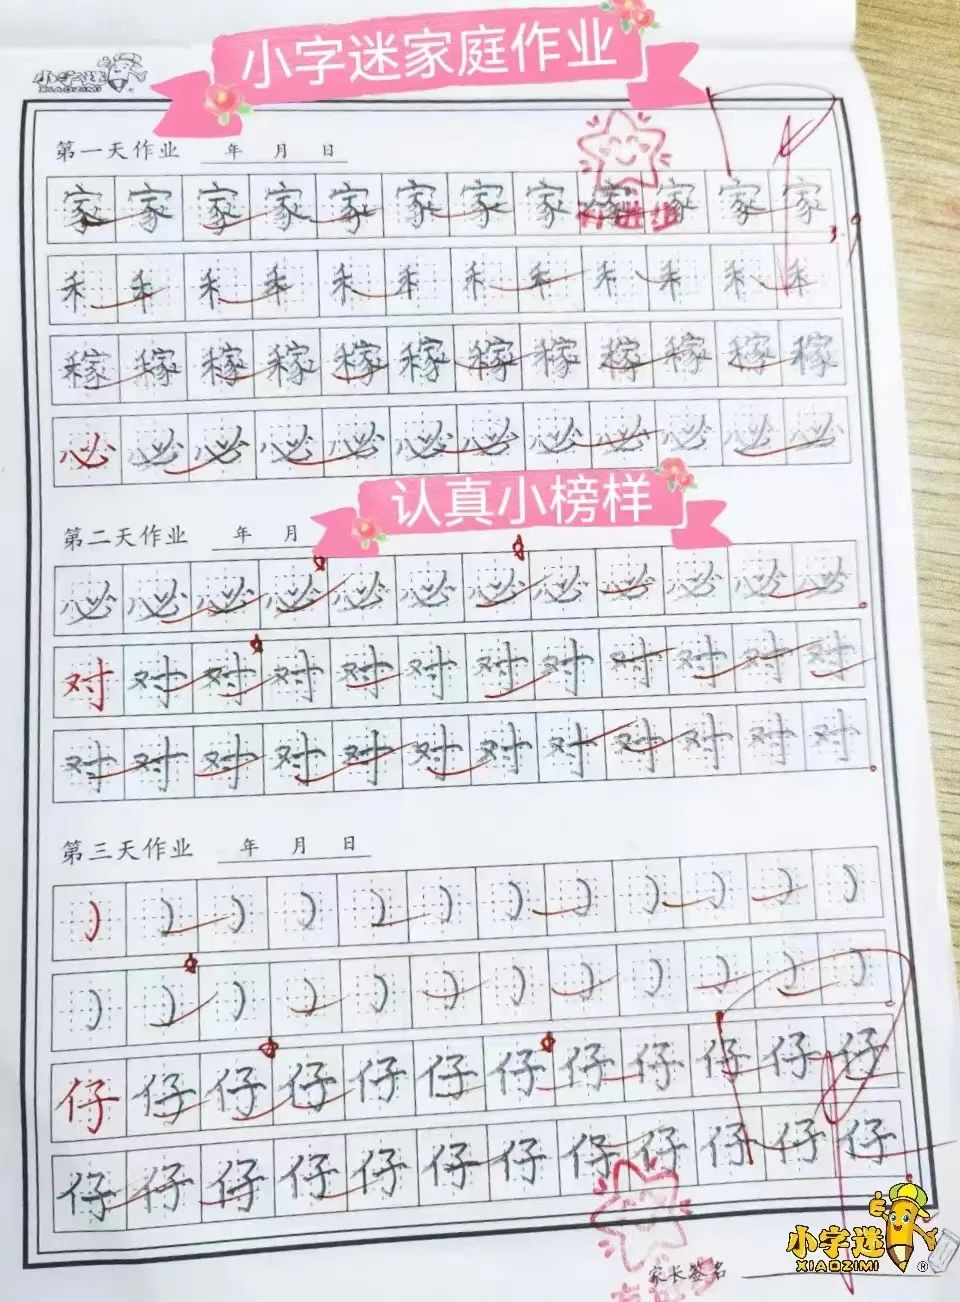 小字迷家庭作业
小字迷
XIAOZIMI
第一天作业 年 月 日
家家家家家家家家家家家家
禾禾禾禾禾禾禾禾禾禾禾禾
稼稼稼稼稼稼稼稼稼稼稼稼
必必必必必必必必必必必必
认真小榜样
第二天作业 年 月
必必必必必必必必必必必必
对对对对对对对对对对对对
对对对对对对对对对对对对
第三天作业 年 月 日
仔仔仔仔仔仔仔仔仔仔仔仔
仔仔仔仔仔仔仔仔仔仔仔仔
家长签名
小字迷
XIAOZIMI ®